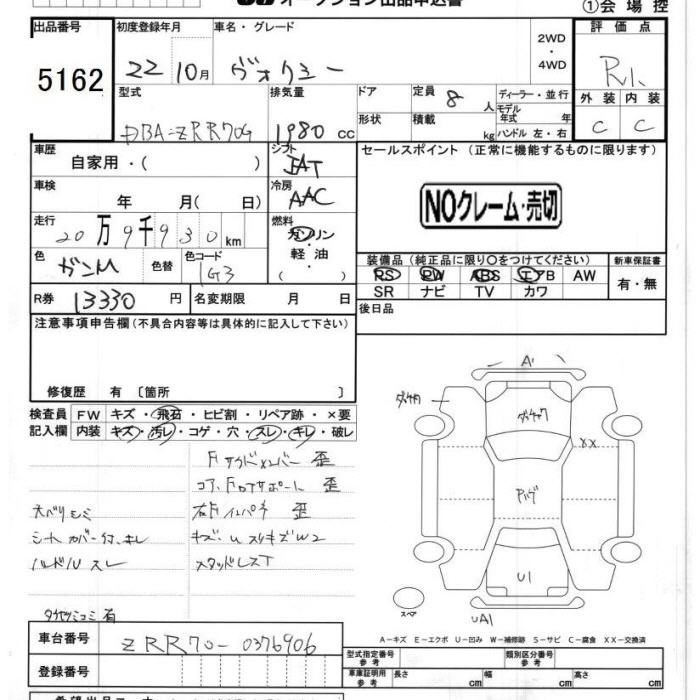 オークション出品申込書 ①会場控
出品番号 初度登録年月 車名・グレード 2WD 評価点
5162 22 10月 ヴォクシー ・ 4WD R1
型式 排気量 ドア 定員 8 人 ディーラー・並行 外装 内装
DBA-ZRR70G 1980 cc 形状 積載 kg モデル年式 年 ハンドル 左・右 C C
車歴 シフト セールスポイント(正常に機能するものに限ります)
自家用・( ) FAT
車検 冷房
年 月( 日) AAC NOクレーム・売切
走行 燃料
20万9千930km ガソリン
色 色替 色コード 軽油 装備品(純正品に限り○をつけてください) 新車保証書
ガンM 1G3 ( ) PS PW ABS エアB AW 有・無
R券 13330円 名変期限 月 日 SR ナビ TV カワ
注意事項申告欄(不具合内容等は具体的に記入して下さい) 後日品
修復歴 有 〔箇所 〕
検査員 FW キズ・飛石・ヒビ割・リペア跡・×要
記入欄 内装 キズ・汚レ・コゲ・穴・スレ・キレ・破レ
Fサイドメンバー 歪
コア、Fロアサポート 歪
右Fインパネ 歪
シートカバー付、キレ キズ・U スリキズW2
ハンドルスレ スタッドレスT
有
A'
XX
U1
スペア
UA1
A－キズ E－エクボ U－凹み W－補修跡 S－サビ C－腐食 XX－交換済
車台番号 ZRR70-0376906 型式指定番号 参考 類別区分番号 参考
登録番号 車庫証明用 参考 長さ cm 幅 cm 高さ cm